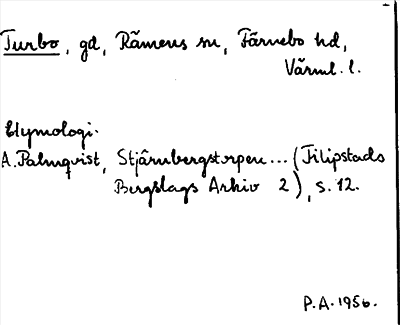 Turbo, gd, Rämens sn, Färnebo hd,
Värml. l.
Etymologi.
A. Palmqvist, Stjärnbergstorpen ... (Filipstads
Bergslags Arkiv 2), s. 12.
P.A. 1956.